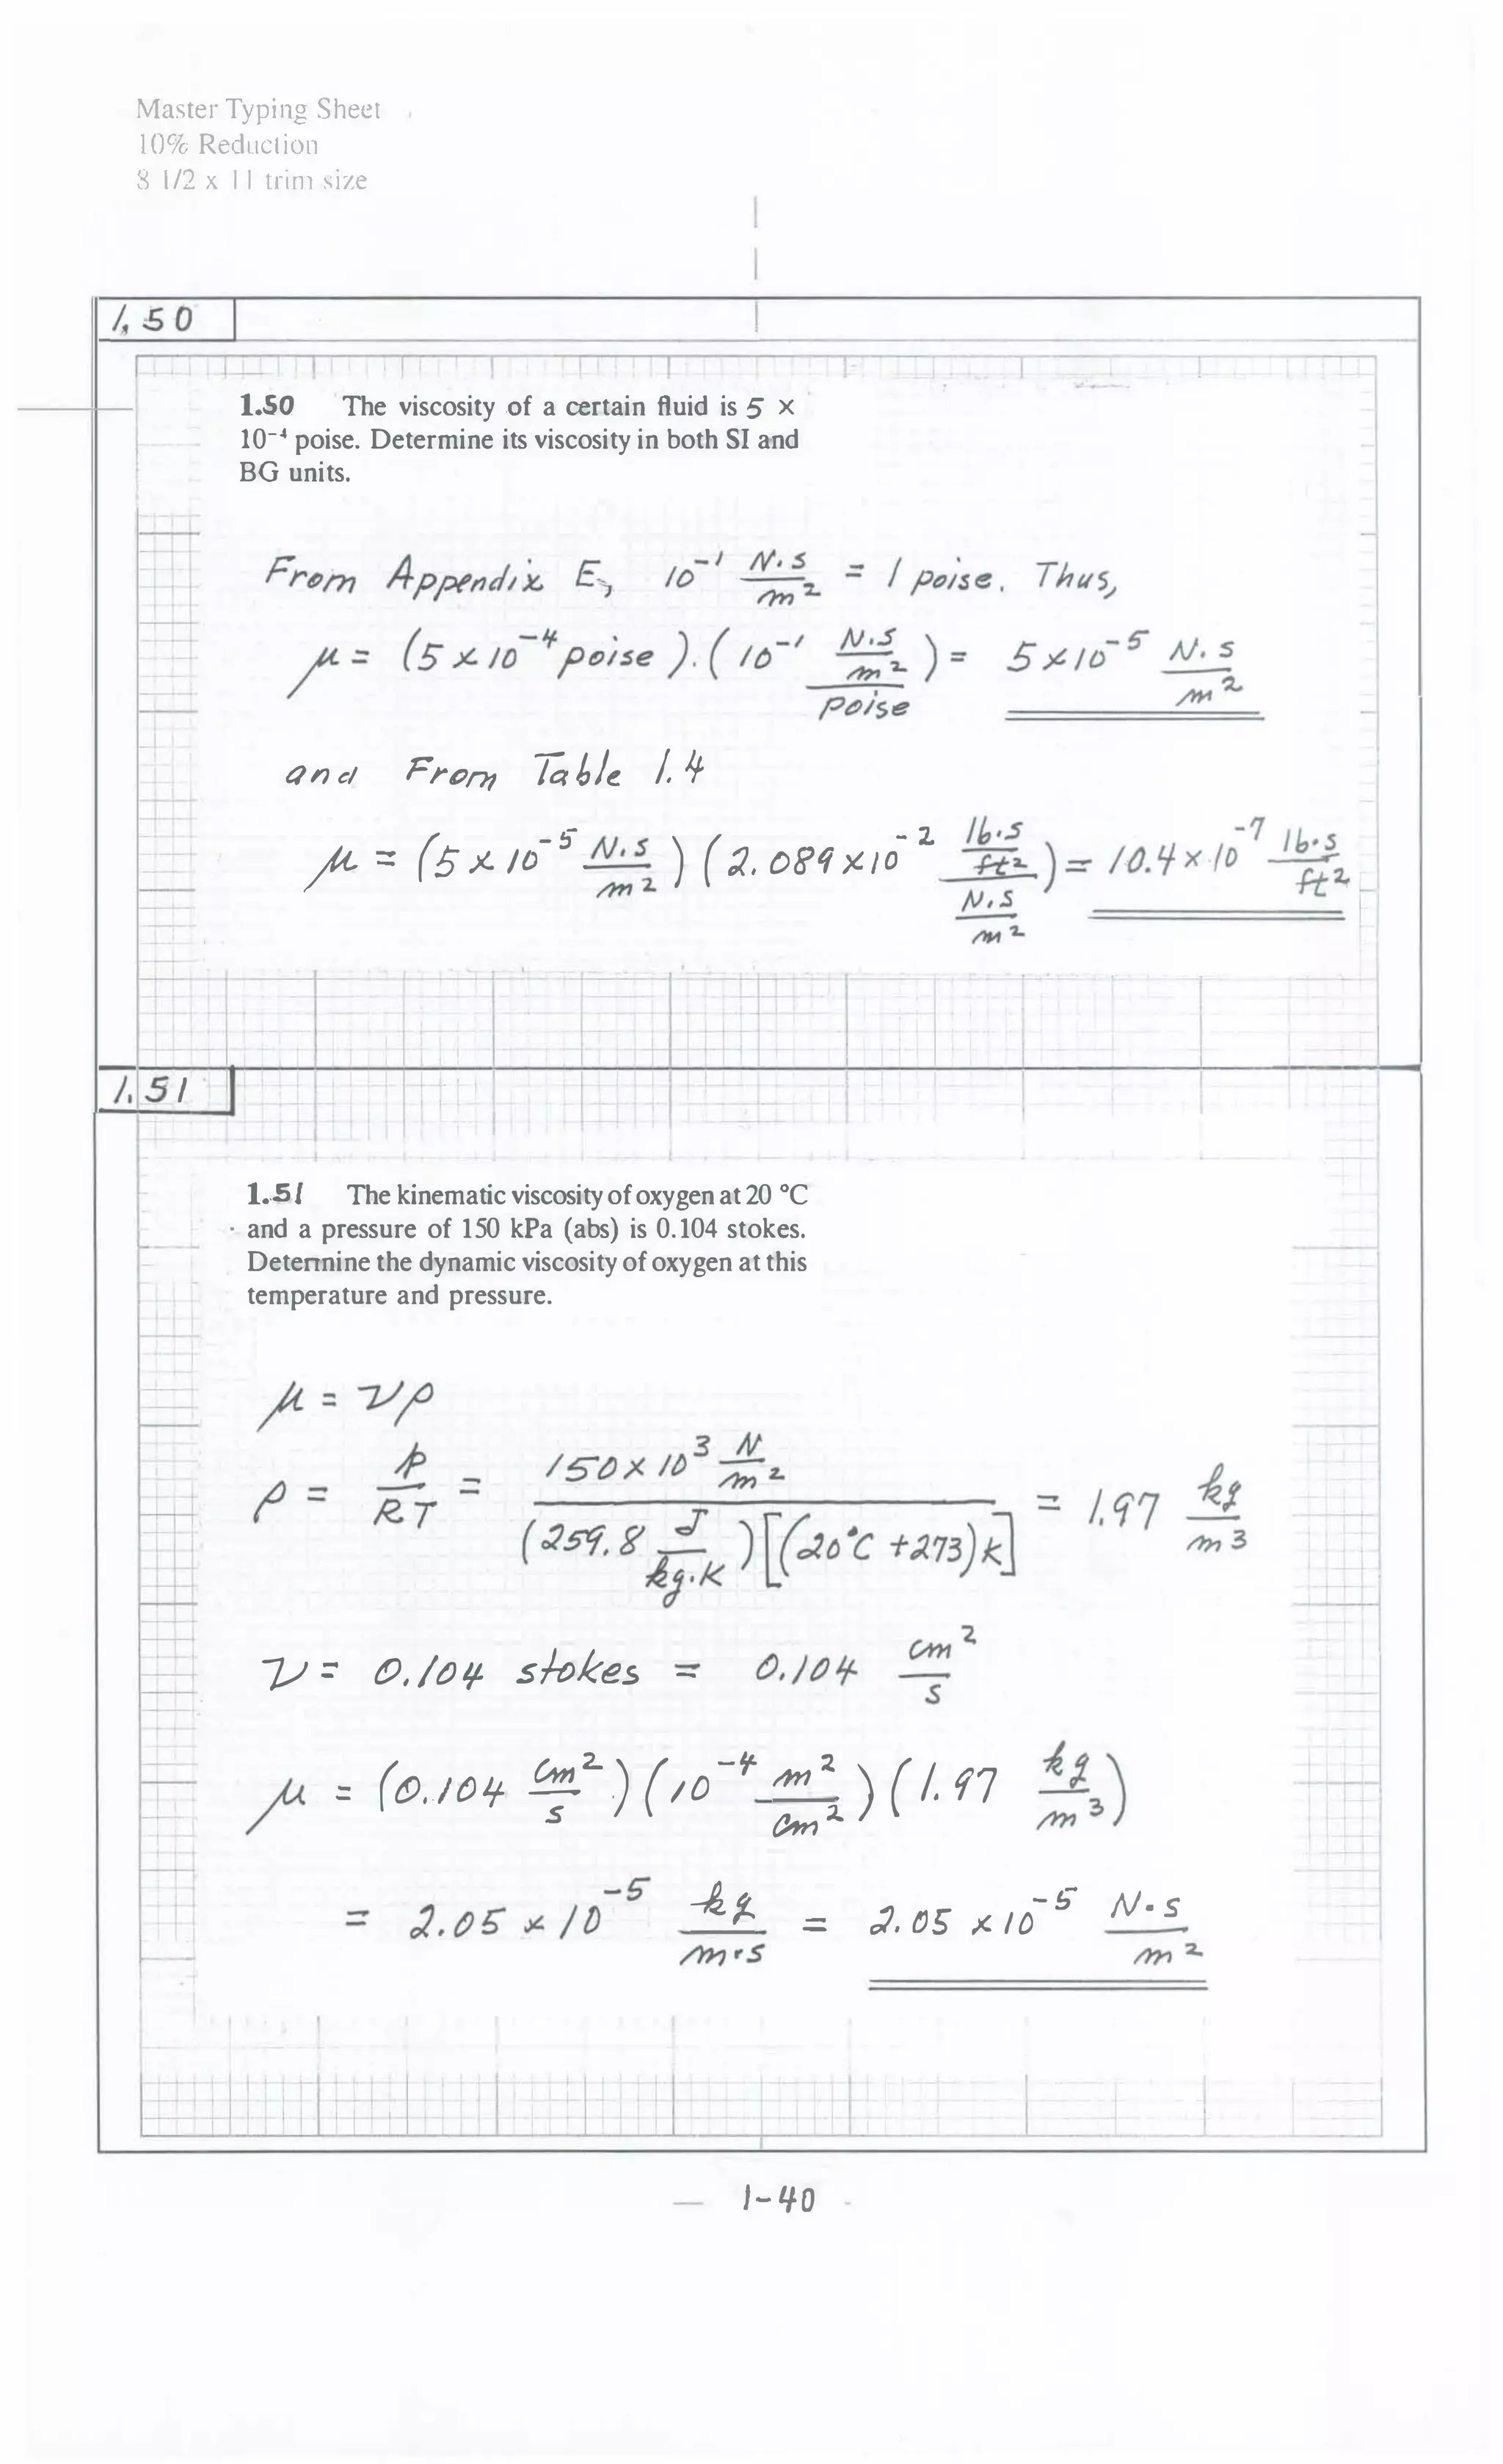 Master Typing Sheet
10% Reduction
8 1/2 x 11 trim size
1.50
1.50 The viscosity of a certain fluid is 5 ×
10⁻⁴ poise. Determine its viscosity in both SI and
BG units.
From Appendix E, 10⁻¹ N·s/m² = 1 poise. Thus,
μ = (5 × 10⁻⁴ poise)·(10⁻¹ (N·s/m²)/poise) = 5 × 10⁻⁵ N·s/m²
and From Table 1.4
μ = (5 × 10⁻⁵ N·s/m²)(2.089 × 10⁻² (lb·s/ft²)/(N·s/m²)) = 10.4 × 10⁻⁷ lb·s/ft²
1.51
1.51 The kinematic viscosity of oxygen at 20 °C
and a pressure of 150 kPa (abs) is 0.104 stokes.
Determine the dynamic viscosity of oxygen at this
temperature and pressure.
μ = νρ
ρ = p/RT = 150 × 10³ N/m² / (259.8 J/kg·K)[(20°C + 273)K] = 1.97 kg/m³
ν = 0.104 stokes = 0.104 cm²/s
μ = (0.104 cm²/s)(10⁻⁴ m²/cm²)(1.97 kg/m³)
= 2.05 × 10⁻⁵ kg/m·s = 2.05 × 10⁻⁵ N·s/m²
1-40